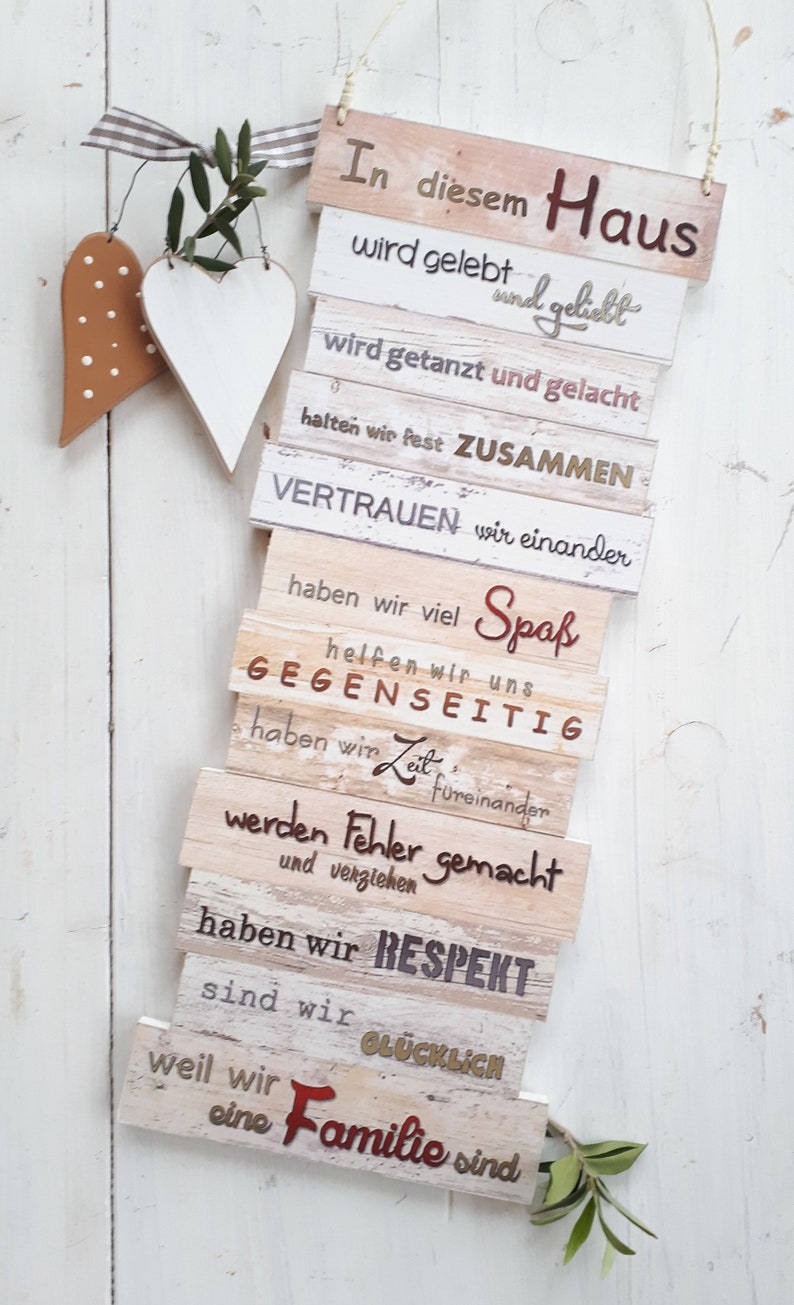 In diesem Haus
wird gelebt
und geliebt
wird getanzt und gelacht
halten wir fest ZUSAMMEN
VERTRAUEN wir einander
haben wir viel Spaß
helfen wir uns
GEGENSEITIG
haben wir Zeit
füreinander
werden Fehler gemacht
und verziehen
haben wir RESPEKT
sind wir
GLÜCKLiCH
weil wir
eine Familie sind